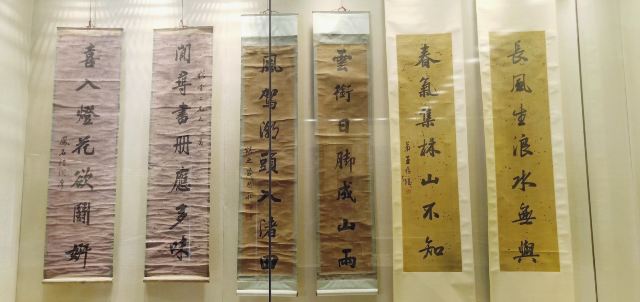 長風生浪水無與
春氣集林山不知
雲銜日脚成山雨
風駕潮頭入渚田
閒尋書册應多味
喜入燈花欲鬭妍